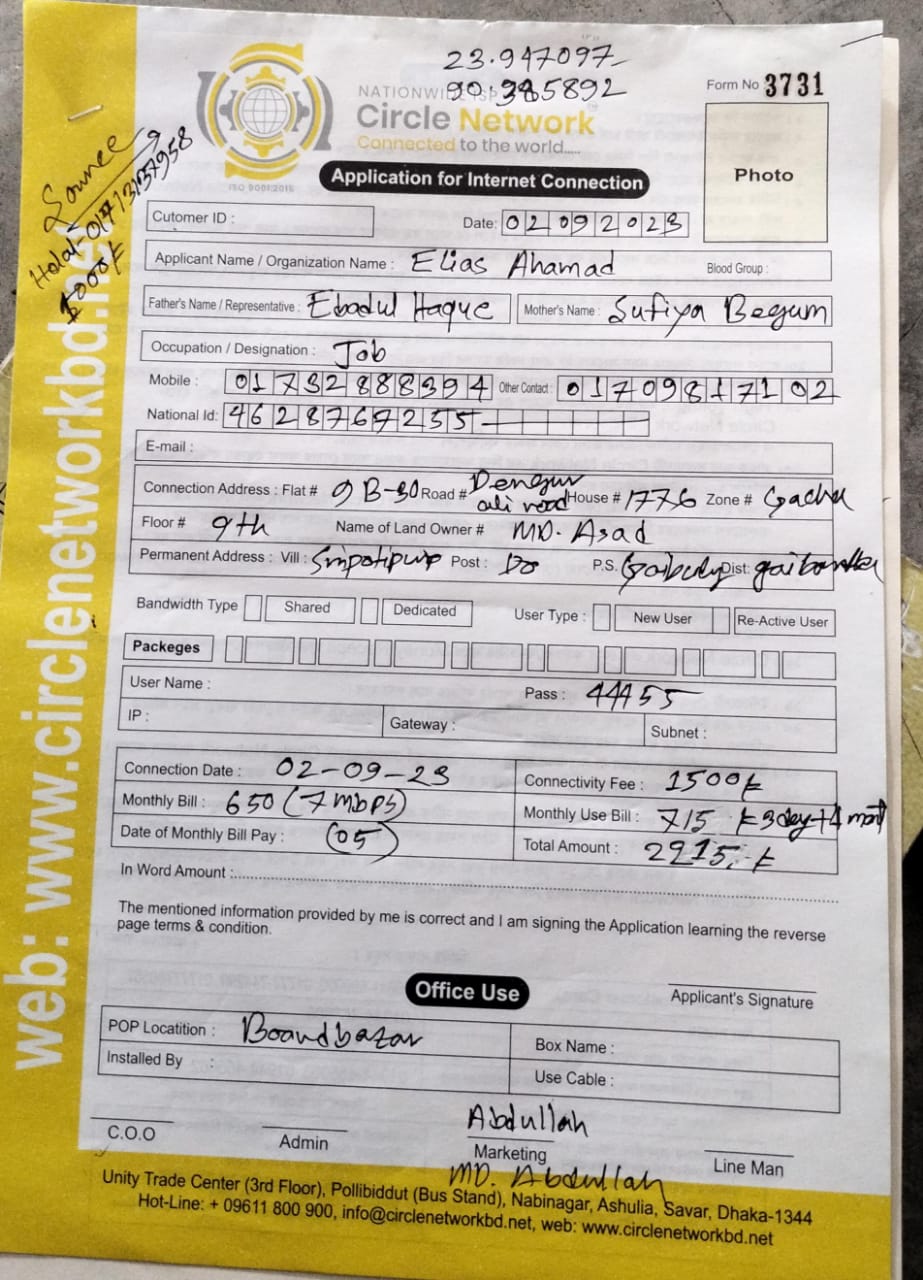 23.947097
90.385892
Form No 3731
NATIONWIDE ISP
Circle Network
Connected to the world.....
ISO 9001:2015
Photo
Application for Internet Connection
Source
Helal-01713137958
1000৳
Cutomer ID :
Date: 02092023
Applicant Name / Organization Name : Elias Ahamad Blood Group :
Father's Name / Representative : Ebadul Haque Mother's Name : Sufiya Begum
Occupation / Designation : Job
Mobile : 01732888394 Other Contact : 01709817102
National Id: 4628767255
E-mail :
Connection Address : Flat # 9 B-30 Road # ali road House # 1776 Zone #
Floor # 9th Name of Land Owner # MD. Asad
Permanent Address : Vill : Post : Do P.S. Dist: gaibandha
Bandwidth Type Shared Dedicated User Type : New User Re-Active User
Packeges
User Name : Pass : 44455
IP : Gateway : Subnet :
Connection Date : 02-09-23 Connectivity Fee : 1500৳
Monthly Bill : 650 (7 mbps) Monthly Use Bill : 715 ৳ 3 day+1 mont
Date of Monthly Bill Pay : (05) Total Amount : 2215.-৳
In Word Amount :
The mentioned information provided by me is correct and I am signing the Application learning the reverse
page terms & condition.
Applicant's Signature
Office Use
POP Locatition : Boardbazar Box Name :
Installed By Use Cable :
Abdullah
C.O.O Admin Marketing Line Man
MD. Abdullah
Unity Trade Center (3rd Floor), Pollibiddut (Bus Stand), Nabinagar, Ashulia, Savar, Dhaka-1344
Hot-Line: + 09611 800 900, info@circlenetworkbd.net, web: www.circlenetworkbd.net
web: www.circlenetworkbd.net